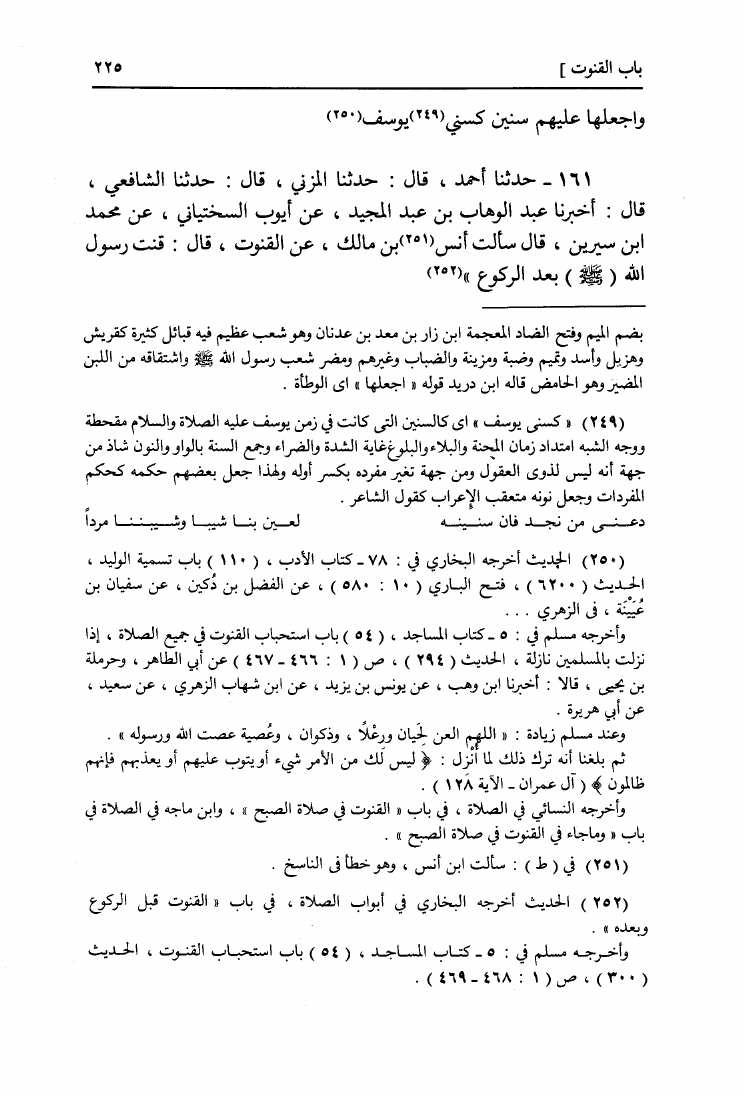 باب القنوت ] ٢٢٥
واجعلها عليهم سنين كسني(٢٤٩)يوسف(٢٥٠)
١٦١ - حدثنا أحمد ، قال : حدثنا المزني ، قال : حدثنا الشافعي ،
قال : أخبرنا عبد الوهاب بن عبد المجيد ، عن أيوب السختياني ، عن محمد
ابن سيرين ، قال سألت أنس(٢٥١)بن مالك ، عن القنوت ، قال : قنت رسول
الله ( ﷺ ) بعد الركوع »(٢٥٢)
بضم الميم وفتح الضاد المعجمة ابن زار بن معد بن عدنان وهو شعب عظيم فيه قبائل كثيرة كقريش
وهزيل وأسد وتميم وضبة ومزينة والضباب وغيرهم ومضر شعب رسول الله ﷺ واشتقاقه من اللبن
المضير وهو الحامض قاله ابن دريد قوله « اجعلها » اى الوطأة .
(٢٤٩) « كسنى يوسف » اى كالسنين التى كانت في زمن يوسف عليه الصلاة والسلام مقحطة
ووجه الشبه امتداد زمان المحنة والبلاء والبلوغ غاية الشدة والضراء وجمع السنة بالواو والنون شاذ من
جهة أنه ليس لذوى العقول ومن جهة تغير مفرده بكسر أوله ولهذا جعل بعضهم حكمه كحكم
المفردات وجعل نونه متعقب الإعراب كقول الشاعر .
دعـنـى من نجـد فان سنـينـه لعـبن بنـا شيبـا وشـيبننـا مرداً
(٢٥٠) الحديث أخرجه البخاري في : ٧٨- كتاب الأدب ، ( ١١٠ ) باب تسمية الوليد ،
الحديث ( ٦٢٠٠ ) ، فتح الباري ( ١٠ : ٥٨٠ ) ، عن الفضل بن دُكين ، عن سفيان بن
عُيَيْنَة ، فى الزهري . . .
وأخرجه مسلم في : ٥ - كتاب المساجد ، ( ٥٤ ) باب استحباب القنوت في جميع الصلاة ، إذا
نزلت بالمسلمين نازلة ، الحديث ( ٢٩٤ ) ، ص ( ١ : ٤٦٦ - ٤٦٧ ) عن أبي الطاهر ، وحرملة
بن يحيى ، قالا : أخبرنا ابن وهب ، عن يونس بن يزيد ، عن ابن شهاب الزهري ، عن سعيد ،
عن أبي هريرة .
وعند مسلم زيادة : « اللهم العن لَحِيان ورِعْلاً ، وذكوان ، وعُصية عصت الله ورسوله » .
ثم بلغنا أنه ترك ذلك لما أُنْزل : ﴿ ليس لَك من الأمر شيء أو يتوب عليهم أو يعذبهم فإنهم
ظالمون ﴾ ( آل عمران - الآية ١٢٨ ) .
وأخرجه النسائي في الصلاة ، في باب « القنوت في صلاة الصبح » ، وابن ماجه في الصلاة في
باب « وماجاء في القنوت في صلاة الصبح » .
(٢٥١) في ( ط ) : سألت ابن أنس ، وهو خطأ فى الناسخ .
(٢٥٢ ) الحديث أخرجه البخاري في أبواب الصلاة ، في باب « القنوت قبل الركوع
وبعده » .
وأخرجه مسلم في : ٥ - كتاب المساجد ، ( ٥٤ ) باب استحباب القنوت ، الحديث
( ٣٠٠ ) ، ص ( ١ : ٤٦٨ - ٤٦٩ ) .